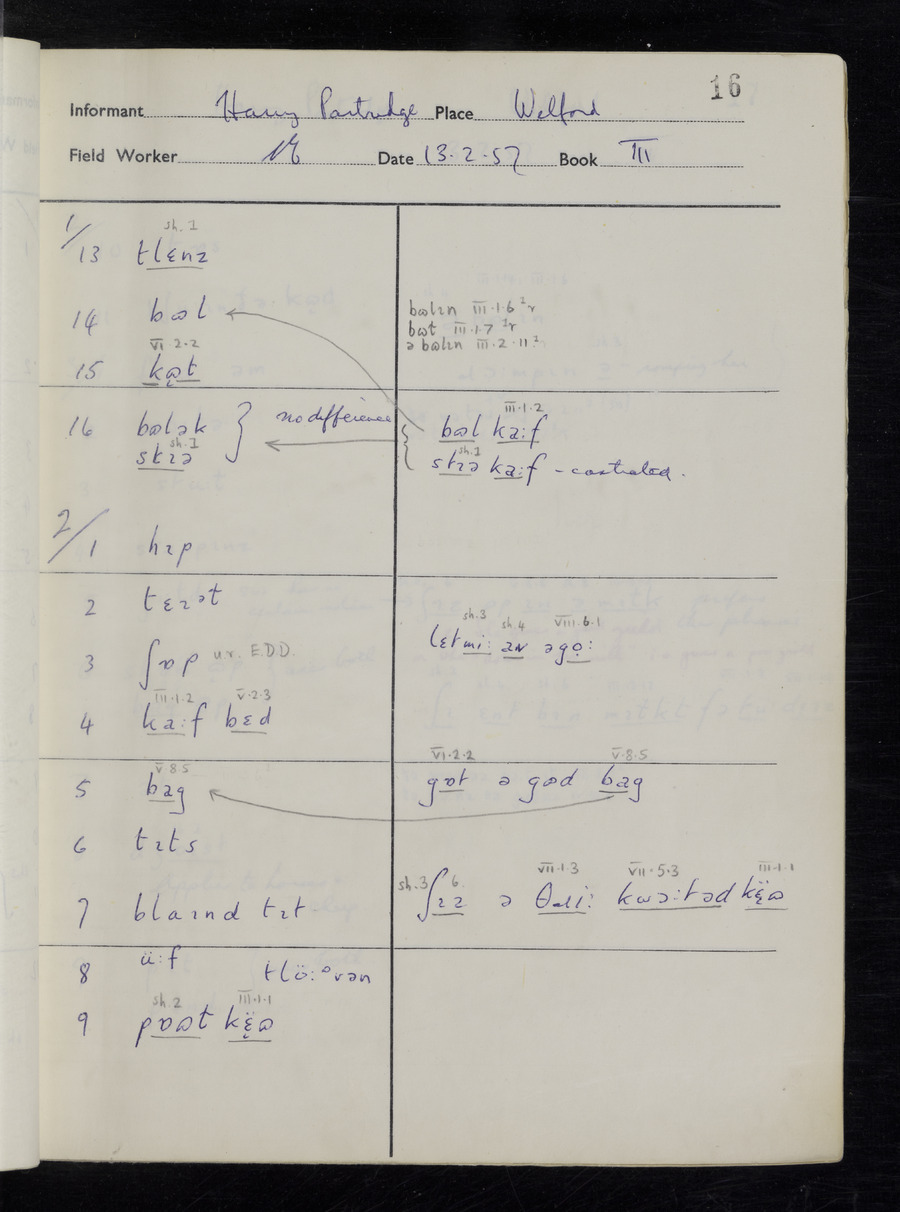 16
Informant Harry Partridge Place Welford
Field Worker Date 13·2·57 Book III
1/
sh. 1
13 tlɛnz
14 bɷl
bɷlɪn III·1·6 ²r
bɷt III·1·7 ²r
ə bɷlɪn III·2·11 ²
VI 2·2
15 kɷ̜t
16 bɷlək } no difference { bɷl ka:f III·1·2
sh. 1
stɪə
sh. 1
stɪə ka:f - castrated.
2/
1 hɪp
2 tɛɪət
3 ʃɒp u.r. E.D.D.
sh.3 sh.4 VIII·6·1
lɛt mi: əgọ:
III·1·2 V·2·3
4 ka:f bɛd
V·8·5
5 bag
VI·2·2 V·8·5
gɒt ə gɷd bag
6 tɪts
7 blaɪnd tɪt
sh.3 6 VII·1·3 VII·5·3 III·1·1
ʃɪz ə θɹi: kwɔ:təd kɛ̜̈ɷ
8 ü:f tlö:ᵊvən
sh 2 III·1·1
9 pɒɷt kɛ̜̈ɷ